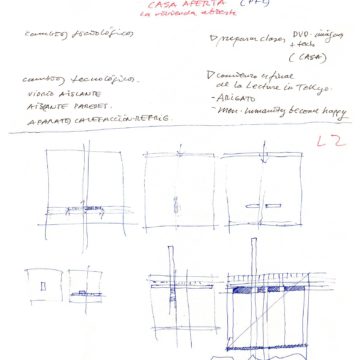 CASA ABIERTA (PFC)
La vivienda
cambios tecnológicos
▷ preparar clases DVD - imágenes
+ texto
(CASA)
cambios tecnológicos.
▷ comienzo y final
de la Lecture in Tokyo.
VIDRIO AISLANTE
- ARIGATO
AISLANTE PAREDES.
humanity become happy
APARATO CALEFACCIÓN-REFRIG.
L2